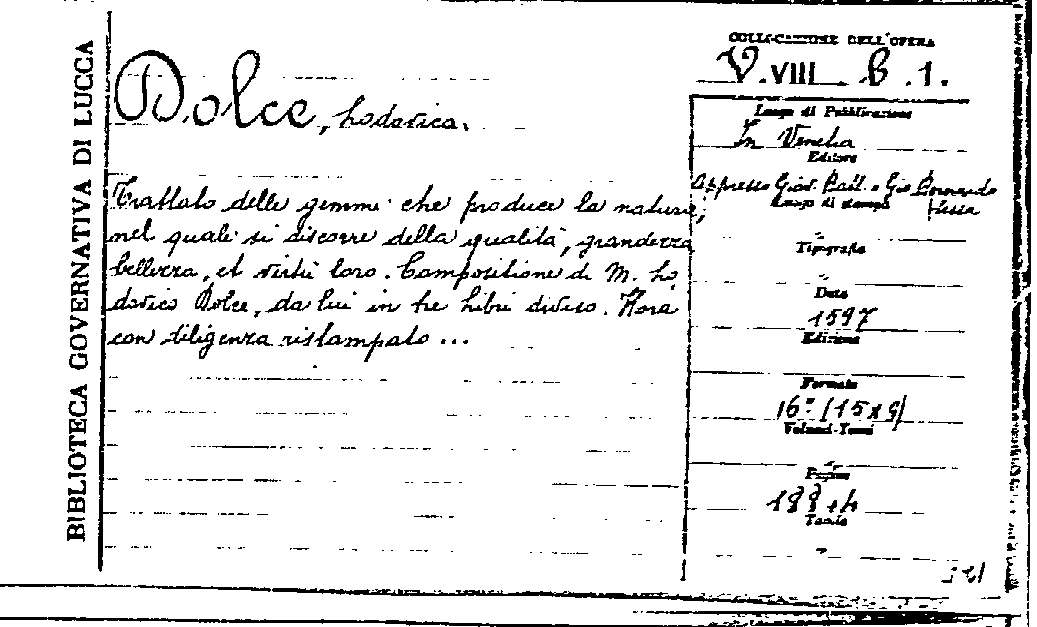 BIBLIOTECA GOVERNATIVA DI LUCCA
Dolce, Lodovico.
Trattato delle gemme che produce la natura;
nel quale si discorre della qualità, grandezza
bellezza, et virtù loro. Compositione di M. Lo
dovico Dolce, da lui in tre libri diviso. Hora
con diligenza ristampato ...
COLLOCAZIONE DELL'OPERA
V.VIII B.1.
Luogo di Pubblicazione
In Venetia
Editore
Appresso Giov. Batt. e Gio Bernardo
Sessa
Luogo di stampa
Tipografia
Data
1597
Edizione
Formato
16° (15x9)
Volumi-Tomi
Pagine
188+4
Tavole